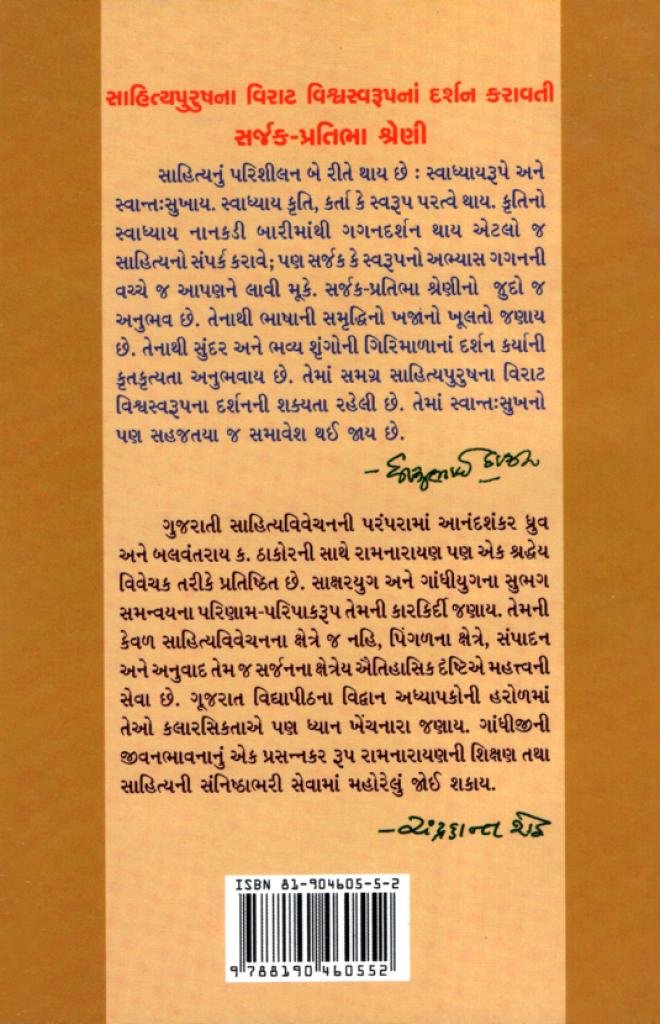 સાહિત્યપુરુષના વિરાટ વિશ્વસ્વરૂપનાં દર્શન કરાવતી
સર્જક-પ્રતિભા શ્રેણી
સાહિત્યનું પરિશીલન બે રીતે થાય છે : સ્વાધ્યાયરૂપે અને
સ્વાન્તઃસુખાય. સ્વાધ્યાય કૃતિ, કર્તા કે સ્વરૂપ પરત્વે થાય. કૃતિનો
સ્વાધ્યાય નાનકડી બારીમાંથી ગગનદર્શન થાય એટલો જ
સાહિત્યનો સંપર્ક કરાવે; પણ સર્જક કે સ્વરૂપનો અભ્યાસ ગગનની
વચ્ચે જ આપણને લાવી મૂકે. સર્જક-પ્રતિભા શ્રેણીનો જુદો જ
અનુભવ છે. તેનાથી ભાષાની સમૃદ્ધિનો ખજાંનો ખૂલતો જણાય
છે. તેનાથી સુંદર અને ભવ્ય શૃંગોની ગિરિમાળાનાં દર્શન કર્યાની
કૃતકૃત્યતા અનુભવાય છે. તેમાં સમગ્ર સાહિત્યપુરુષના વિરાટ
વિશ્વસ્વરૂપના દર્શનની શક્યતા રહેલી છે. તેમાં સ્વાન્તઃસુખનો
પણ સહજતયા જ સમાવેશ થઈ જાય છે.
ગુજરાતી સાહિત્યવિવેચનની પરંપરામાં આનંદશંકર ધ્રુવ
અને બલવંતરાય ક. ઠાકોરની સાથે રામનારાયણ પણ એક શ્રદ્ધેય
વિવેચક તરીકે પ્રતિષ્ઠિત છે. સાક્ષરયુગ અને ગાંધીયુગના સુભગ
સમન્વયના પરિણામ-પરિપાકરૂપ તેમની કારકિર્દી જણાય. તેમની
કેવળ સાહિત્યવિવેચનના ક્ષેત્રે જ નહિ, પિંગળના ક્ષેત્રે, સંપાદન
અને અનુવાદ તેમ જ સર્જનના ક્ષેત્રેય ઐતિહાસિક દૃષ્ટિએ મહત્ત્વની
સેવા છે. ગૂજરાત વિદ્યાપીઠના વિદ્વાન અધ્યાપકોની હરોળમાં
તેઓ કલારસિકતાએ પણ ધ્યાન ખેંચનારા જણાય. ગાંધીજીની
જીવનભાવનાનું એક પ્રસન્નકર રૂપ રામનારાયણની શિક્ષણ તથા
સાહિત્યની સંનિષ્ઠાભરી સેવામાં મહોરેલું જોઈ શકાય.
–ચંદ્રકાન્ત શેઠ
ISBN 81-904605-5-2
9 788190 460552